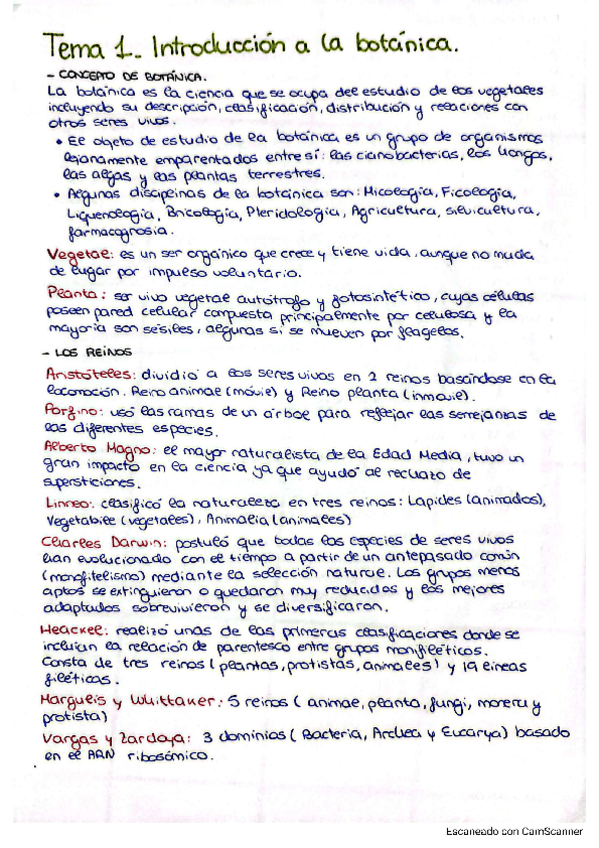 Tema 1.- Introducción a la botánica.
- CONCEPTO DE BOTÁNICA.
La botánica es la ciencia que se ocupa del estudio de los vegetales
incluyendo su descripción, clasificación, distribución y relaciones con
otros seres vivos.
• El objeto de estudio de la botánica es un grupo de organismos
lejanamente emparentados entre sí: las cianobacterias, los hongos,
las algas y las plantas terrestres.
• Algunas disciplinas de la botánica son: Micología, Ficología,
Liquenología, Bricología, Pteridología, Agricultura, silvicultura,
farmacognosia.
Vegetal: es un ser orgánico que crece y tiene vida, aunque no muda
de lugar por impulso voluntario.
Planta: ser vivo vegetal autótrofo y fotosintético, cuyas células
poseen pared celular compuesta principalmente por celulosa y la
mayoría son sésiles, algunas sí se mueven por flagelos.
- LOS REINOS
Aristóteles: dividió a los seres vivos en 2 reinos basándose en la
locomoción. Reino animal (móvil) y Reino planta (inmóvil).
Porfino: usó las ramas de un árbol para reflejar las semejanzas de
las diferentes especies.
Alberto Magno: el mayor naturalista de la Edad Media, tuvo un
gran impacto en la ciencia ya que ayudó al rechazo de
supersticiones.
Linneo: clasificó la naturaleza en tres reinos: Lapides (animados),
Vegetabile (vegetales), Animalia (animales)
Charles Darwin: postuló que todas las especies de seres vivos
han evolucionado con el tiempo a partir de un antepasado común
(monfitelismo) mediante la selección natural. Los grupos menos
aptos se extinguieron o quedaron muy reducidos y los mejores
adaptados sobrevivieron y se diversificaron.
Heackel: realizó unas de las primeras clasificaciones donde se
incluían la relación de parentesco entre grupos monfiléticos.
Consta de tres reinos (plantas, protistas, animales) y 19 líneas
filéticas.
Margulis y Whittaker: 5 reinos (animal, planta, fungi, morera y
protista)
Vargas y Zardoja: 3 dominios (Bacteria, Archea y Eucarya) basado
en el ARN ribosómico.
Escaneado con CamScanner